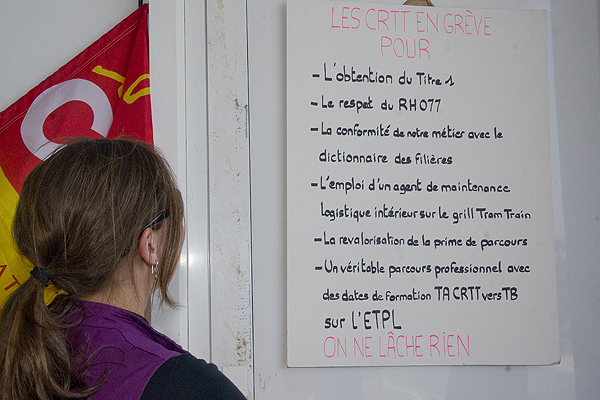 LES CRTT EN GRÈVE
POUR
- L'obtention du Titre 1
- Le respet du RH077
- La conformité de notre métier avec le
dictionnaire des filières
- L'emploi d'un agent de maintenance
logistique intérieur sur le grill Tram Train
- La revalorisation de la prime de parcours
- Un véritable parcours professionnel avec
des dates de formation TA CRTT vers TB
sur L'ETPL
ON NE LÂCHE RIEN